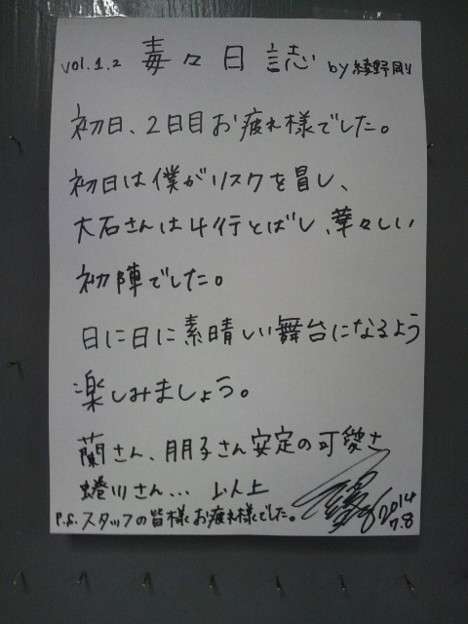 vol.1.2 毒々日誌 by 綾野剛
初日、2日目お疲れ様でした。
初日は僕がリスクを冒し、
大石さんは4行とばし、華々しい
初陣でした。
日に日に素晴しい舞台になるよう
楽しみましょう。
蘭さん、朋子さん安定の可愛さ
蜷川さん… 以上
P.S.スタッフの皆様お疲れ様でした。
2014
7.8